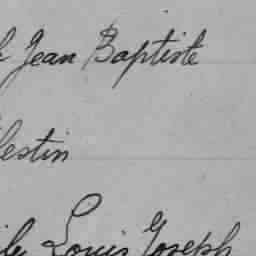 Jean Baptiste
lestin
Louis Joseph